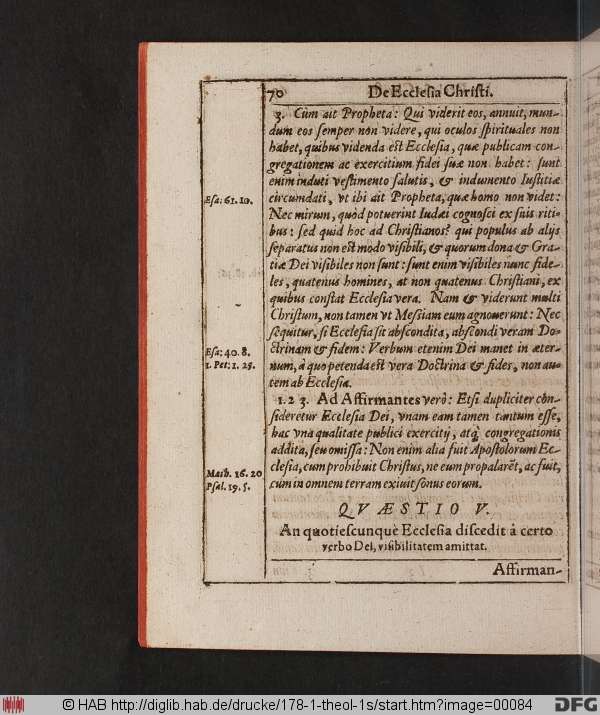 70 De Ecclesia Christi.
3. Cùm ait Propheta: Qui viderit eos, annuit, mun-
dum eos semper non videre, qui oculos spirituales non
habet, quibus videnda est Ecclesia, quæ publicam con-
gregationem ac exercitium fidei suæ non habet: sunt
enim induti vestimento salutis, & indumento Iustitiæ
Esa: 61. 10.
circumdati, vt ibi ait Propheta, quæ homo non videt:
Nec mirum, quòd potuerint Iudæi cognosci ex suis riti-
bus: sed quid hoc ad Christianos? qui populus ab alijs
separatus non est modo visibili, & quorum dona & Gra-
tiæ Dei visibiles non sunt: sunt enim visibiles nunc fide-
les, quatenus homines, at non quatenus Christiani, ex
quibus constat Ecclesia vera. Nam & viderunt multi
Christum, non tamen vt Messiam eum agnouerunt: Nec
sequitur, si Ecclesia sit abscondita, abscondi veram Do-
Esa: 40. 8.
ctrinam & fidem: Verbum etenim Dei manet in æter-
1. Pet: 1. 25.
num, à quo petenda est vera Doctrina & fides, non au-
tem ab Ecclesia.
1. 2 3. Ad Affirmantes verò: Etsi dupliciter con-
sideretur Ecclesia Dei, vnam eam tamen tantum esse,
hac vna qualitate publici exercitij, atq; congregationis
addita, seu omissa: Non enim alia fuit Apostolorum Ec-
Math. 16. 20
clesia, cum prohibuit Christus, ne eum propalarēt, ac fuit,
Psal. 19. 5.
cum in omnem terram exiuit sonus eorum.
QVÆSTIO V.
An quotiescunquè Ecclesia discedit à certo
verbo Dei, visibilitatem amittat.
Affirman-
© HAB http://diglib.hab.de/drucke/178-1-theol-1s/start.htm?image=00084
DFG